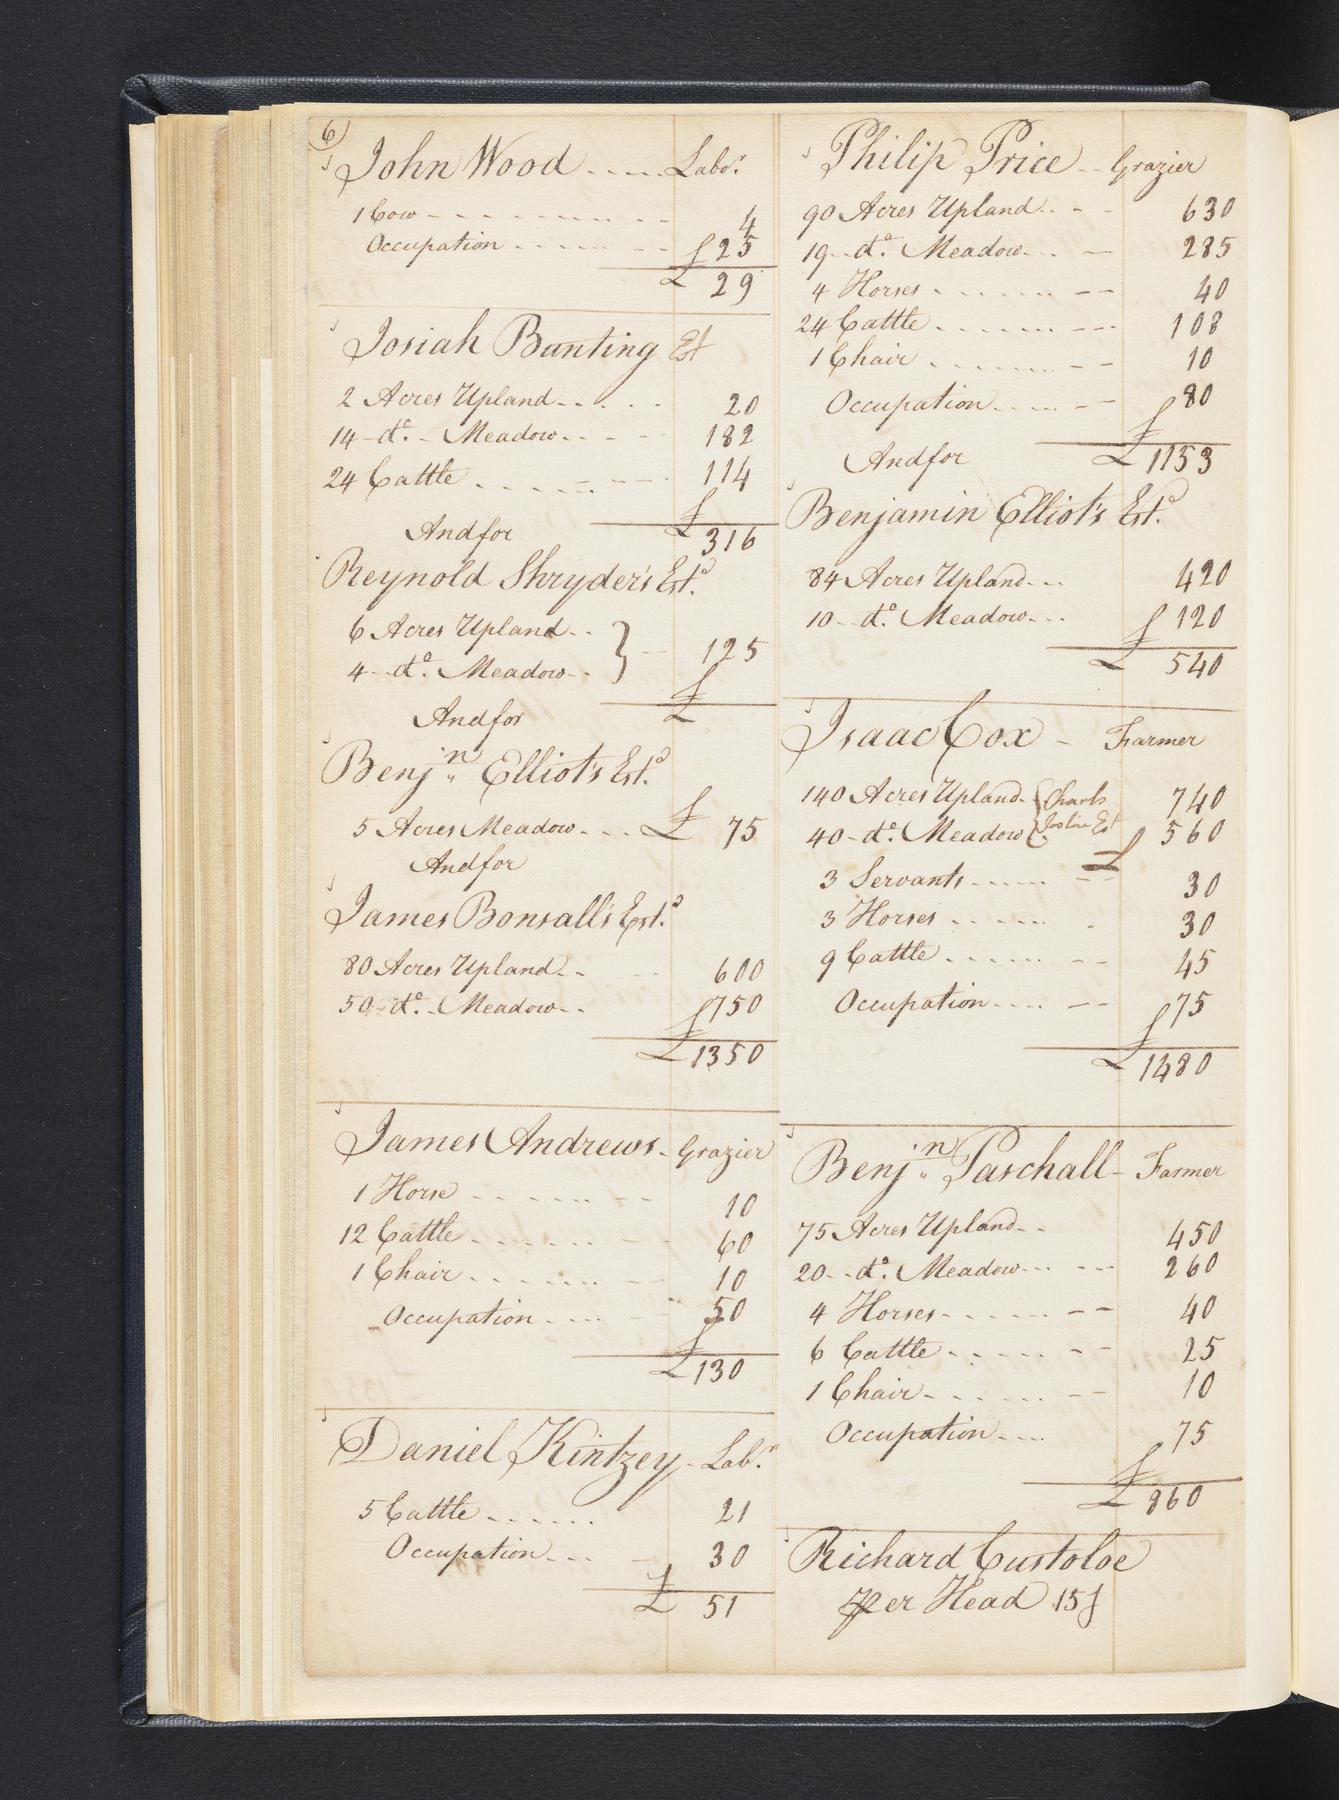 6)
John Wood ..... Labo.r
1 Cow - - - - - - - - - 4
Occupation - - - - - - £25
£ 29
Josiah Bunting Est
2 Acres Upland - - . . . 20
14 - do. - Meadow - . - - 182
24 Cattle - - - - - - - - 114
Andfor £ 316
Reynold Shryder's Esto.
6 Acres Upland - - } - - 125
4 - - do. Meadow - -
Andfor £
Benj.n Elliot's Esto.
5 Acres Meadow - - . . £ 75
Andfor
James Bonsall's Esto.
80 Acres Upland - - 600
50 - do. - Meadow - - £750
£1350
James Andrews - Grazier
1 Horse - - - - - - - 10
12 Cattle - - - - - - - 60
1 Chair - - - - - - - - 10
Occupation - - - - - 50
£130
Daniel Kintzey - Lab.r
5 Cattle - - - - - - 21
Occupation - - - - 30
£ 51
Philip Price - - Grazier
90 Acres Upland . . - - 630
19 - - do. Meadow - . . - 285
4 Horses - - - - - - - - 40
24 Cattle - - - - - - - - 108
1 Chair - - - - - - - - 10
Occupation - - - - - - £80
Andfor £1153
Benjamin Elliot's Esto.
84 Acres Upland - - . 420
10 - - do. Meadow - . . £120
£ 540
Isaac Cox - Farmer
140 Acres Upland - { Charls 740
40 - do. Meadow { Joslin Est £ 560
3 Servants - - - - - - - 30
3 Horses - - - - - - - 30
9 Cattle - - - - - - - - 45
Occupation - - - - - - £75
£1480
Benj.n Paschall - Farmer
75 Acres Upland - - 450
20 - - do. Meadow - - - - - 260
4 Horses - - - - - - - - 40
6 Cattle - - - - - - - - 25
1 Chair - - - - - - - - 10
Occupation - - - - 75
£ 860
Richard Custoloe
Per Head 15/